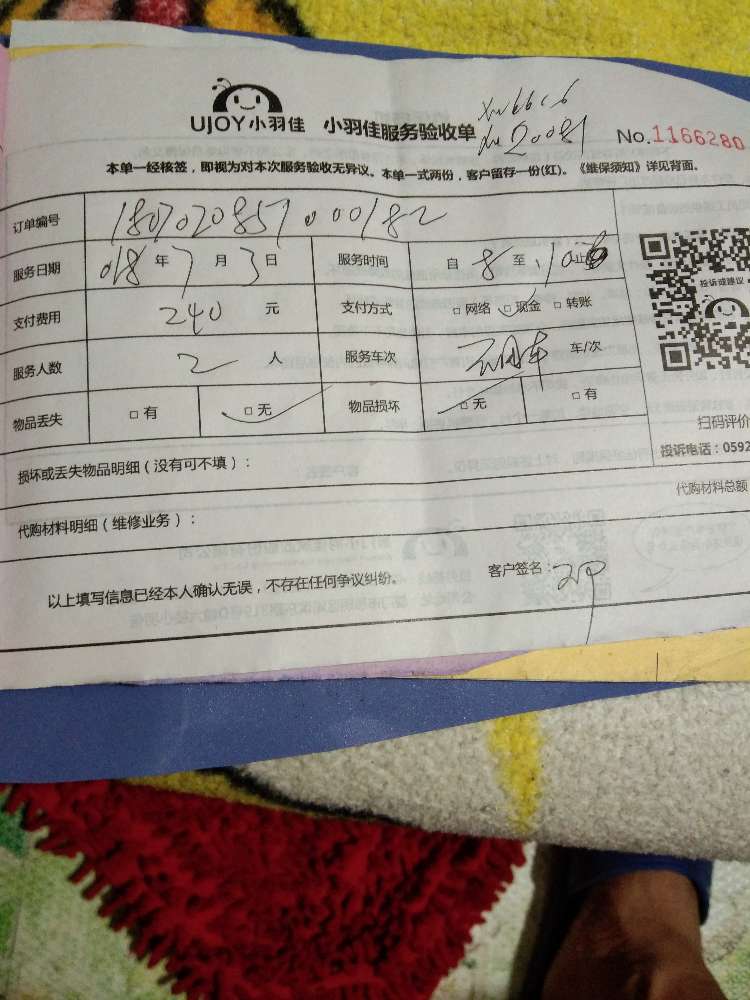 UJOY小羽佳 小羽佳服务验收单
xw6606
xw20081
No.1166280
本单一经核签，即视为对本次服务验收无异议。本单一式两份，客户留存一份(红)。《维保须知》详见背面。
订单编号 180702085700182
服务日期 018年7月3日 服务时间 自8至10止
投诉或建议
支付费用 240元 支付方式 □网络 □现金 □转账
服务人数 2人 服务车次 车/次
物品丢失 □有 □无 物品损坏 □无 □有
扫码评价
投诉电话：0592
损坏或丢失物品明细（没有可不填）：
代购材料总额
代购材料明细（维修业务）：
以上填写信息已经本人确认无误，不存在任何争议纠纷。 客户签名：